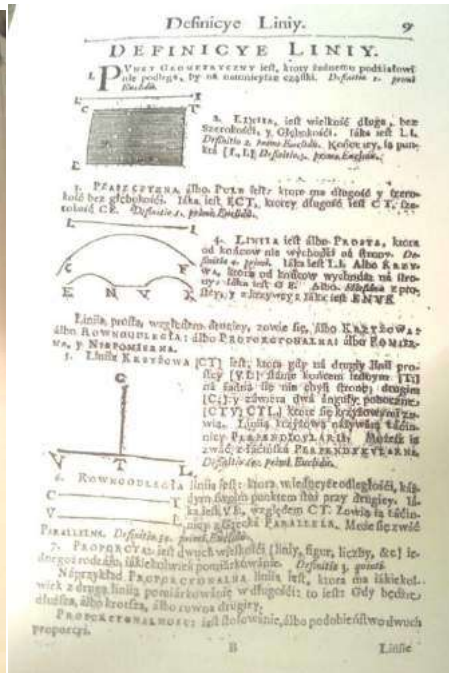 Definicye Liniy.
9
DEFINICYE LINIY.
1. PUNKT GEOMETRYCZNY iest, ktory żadnemu podziałowi
nie podlega, by na namnieysze cząstki. Definitio 1. primi
Euclid.
L I
C T
E
2. LINIIA, iest wielkość długa, bez
Szerokośći, y Głębokośći. Iáka iest L I.
Definitio 2. primo Euclid. Końce iey, są pun-
ktá [L, I,] Definitio 3. primo Euclid.
álbo POLE iest; ktore ma długość y szero-
kość bez głębokośći. Iáka iest ECT, ktorey długość iest CT, sze-
rokość CE. Definitio 5. primi Euclid.
L I
C F
E N V X
4. LINIIA iest álbo PROSTA, ktora
od końcow nie wychodzi ná strony. De-
finitio 4. primi. Iáka iest L I. Albo KRZY-
WA, ktora od końcow wychodzi ná stro-
ny: iáka iest Albo z pro-
stey, y z krzywey: iáka iest ENVX
Liniia, prosta, względem drugiey, zowie się, álbo KRZYZOWA:
álbo ROWNOODLEGŁA: álbo PROPORCYONALNA:
y NIEPOMIERNA.
5. Liniia KRZYZOWA [CT] iest, ktora gdy ná drugiy linii pro-
stey [VL] stánie końcem iednym [T]
ná żadną się nie chyli stronę; drugim
[C:] y záwiera dwá ánguły poboczne
[CTV, CTL] ktore się krzyżowymi zo-
wią. Liniią krzyżową názywáią Łáćin-
nicy PERPENDICULARIS. Możesz ią
zwáć z łáćinská PERPENDYKULARNA.
C
V T L
6. ROWNOODLEGŁA liniia iest: ktora w iednyże odległośći, káż-
dym swoim punktem stoi przy drugiey. Iá-
ka iest VE, względem CT. Zowią ią Łáćin-
nicy z grecká PARALLELA. Może się zwáć
C T
V E
PARALLELNA.
7. PROPORCYA: iest dwuch wielkośći (liniy, figur, liczby, &c) ie-
dnego rodzáiu, iákiekolwiek pomiárkowánie. Definitio 3. quinti.
Náprzykład PROPORCYONALNA liniia iest, ktora ma iákiekol-
wiek z drugą liniią pomiárkowánie w długośći: to iest: Gdy będzie,
dłuższa, álbo krotsza, álbo rowna drugiey.
PROPORCYONALNOSC: iest stosowánie, álbo podobieństwo dwuch
proporcyi.
B
Liniie